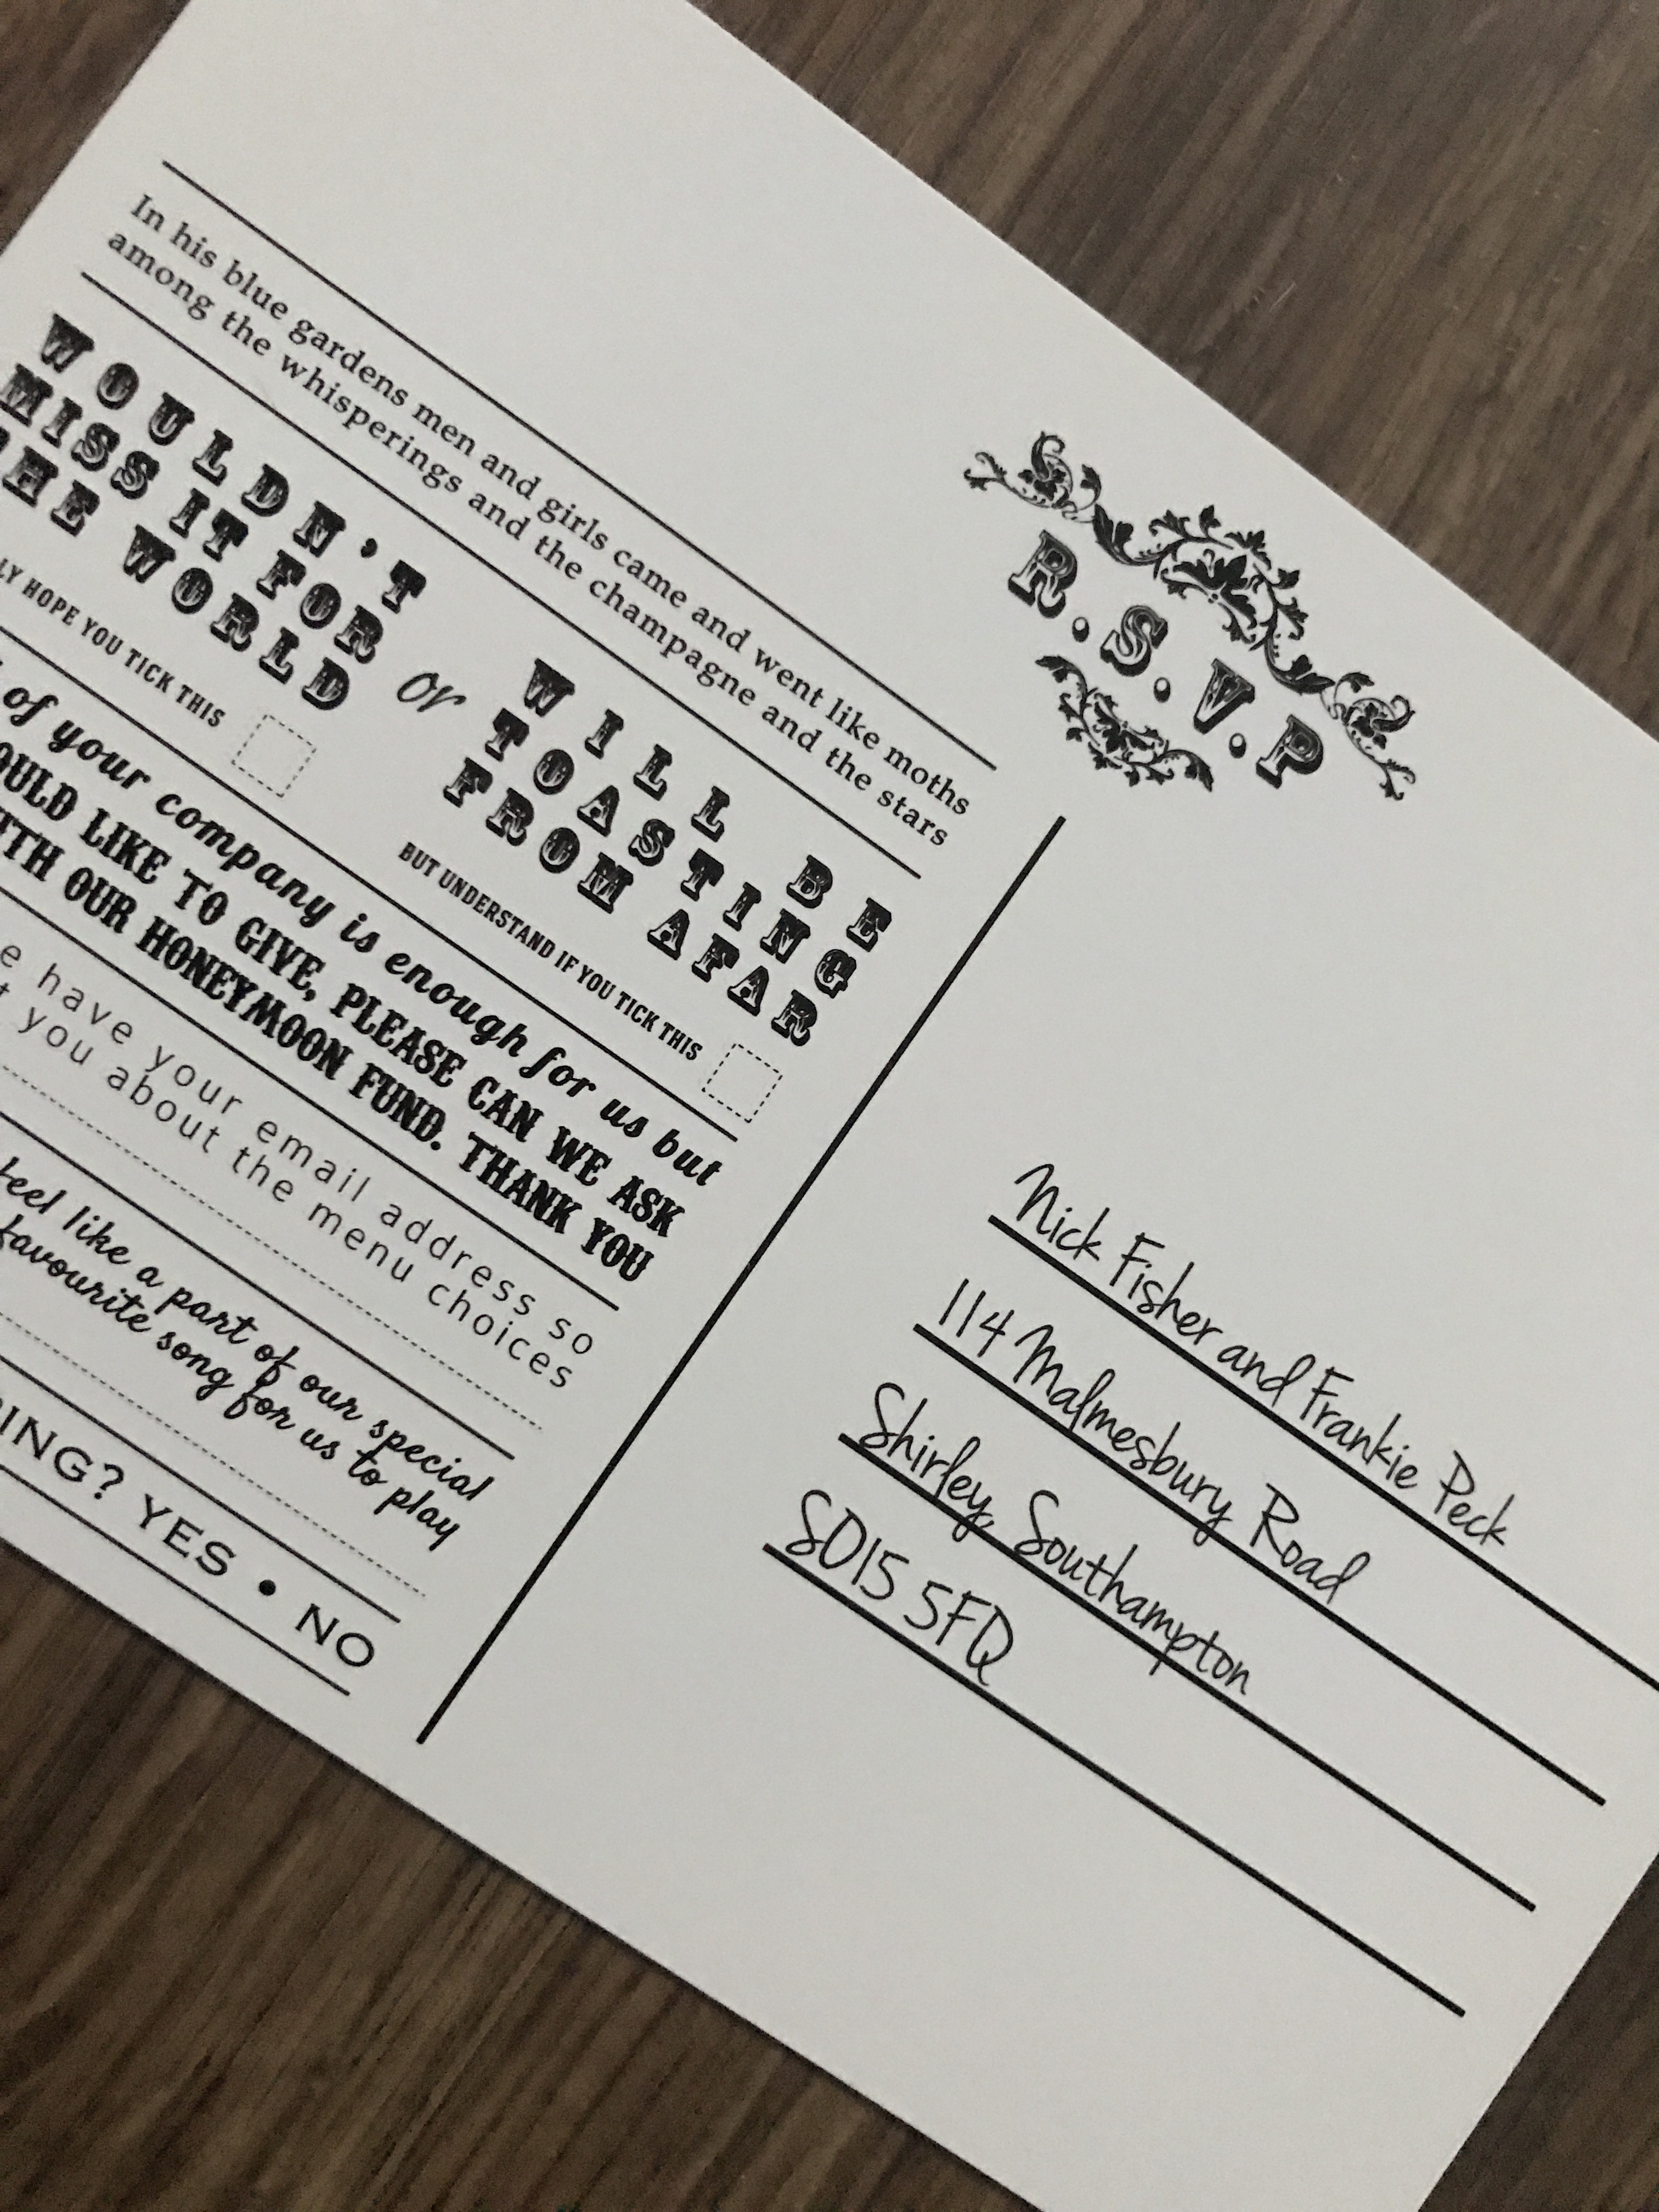 In his blue gardens men and girls came and went like moths
among the whisperings and the champagne and the stars
WOULDN'T
MISS IT FOR
THE WORLD
HOPE YOU TICK THIS
or
WILL BE
TOASTING
FROM AFAR
BUT UNDERSTAND IF YOU TICK THIS
of your company is enough for us but
LIKE TO GIVE, PLEASE CAN WE ASK
OUR HONEYMOON FUND. THANK YOU
have your email address so
you about the menu choices
feel like a part of our special
favourite song for us to play
YES • NO
R.S.V.P
Nick Fisher and Frankie Peck
114 Malmesbury Road
Shirley, Southampton
SO15 5FQ